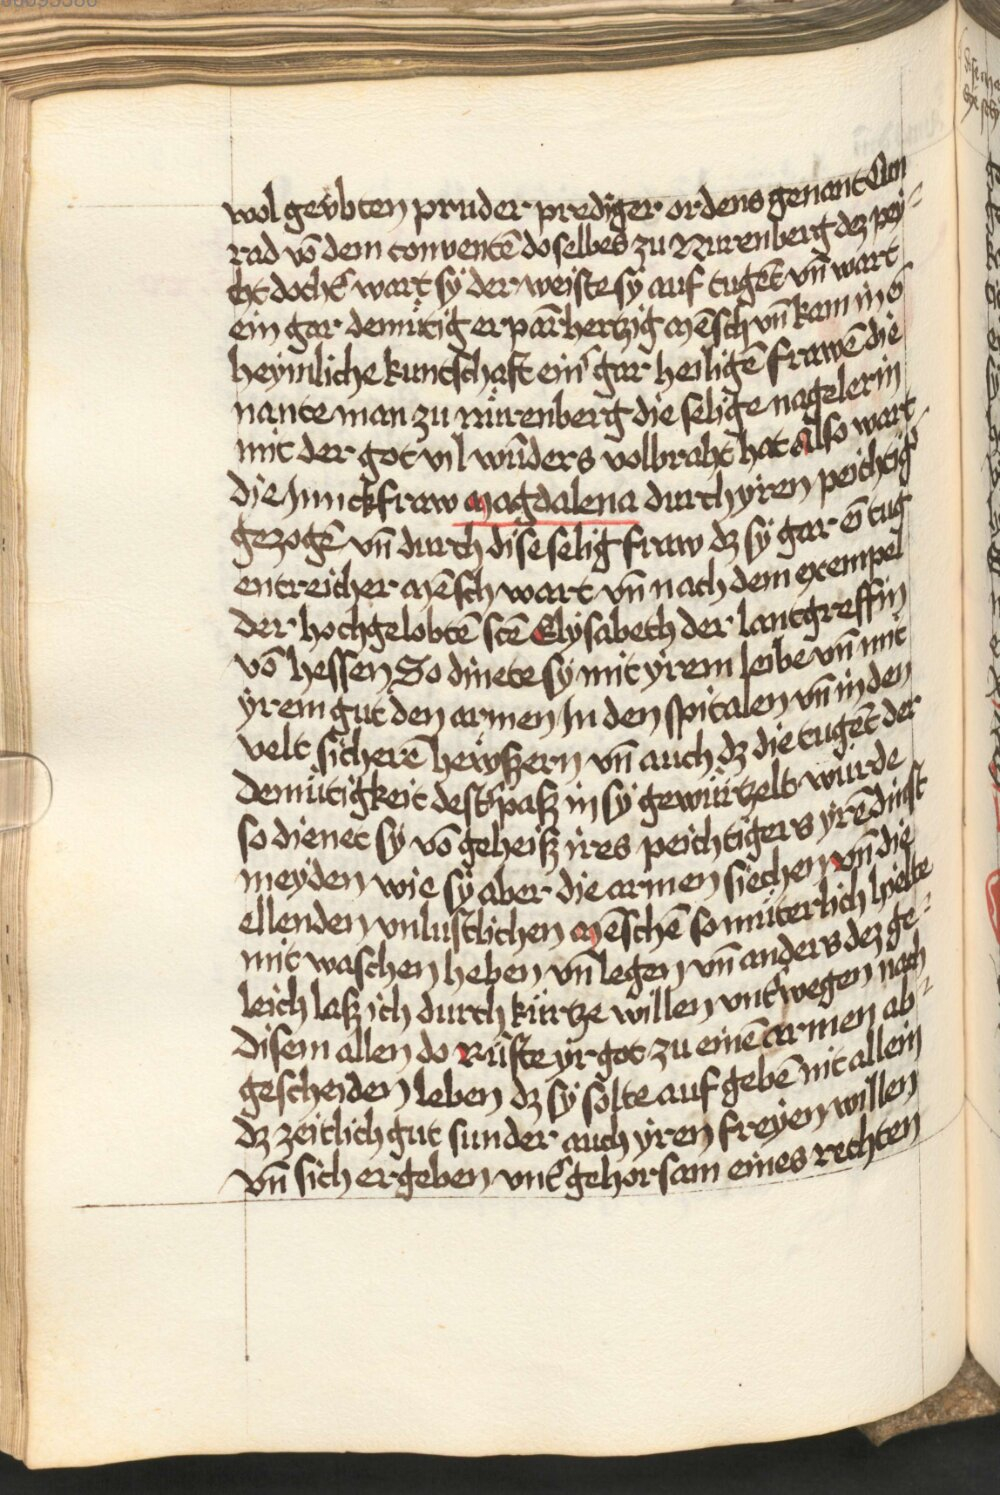 wol geübten pruder prediger ordens genant Cun
rad vō dem conventē doselbes zu Nurenberg dez pey-
cht docht' wart sÿ der weiste sÿ auf tugēt vn̄ wart
ein gar demütig erpārhertzig mēsch vn̄ kam in ō
heymliche kuntschaft ein' gar heiligē frawē die
nante man zu nürenberg die selige nagelerin
mit der got vil wūders volbraht hat Also wart
die Junckfraw Magdalena durch yren peichtig'
gezogē vn̄ durch dise selig fraw dz sÿ gar ē tug
entreicher mēsch wart vn̄ nach dem exempel
der hochgelobtē stē Elÿsabeth der lantgreffin
vō hessen So dinete sÿ mit yrem leibe vn̄ mit
yrem gut den armen Jn den spitalen vn̄ in den
velt sicherē hewszern vn̄ auch dz die tugēt der
demütigkeit dest' pasz in sÿ gewürtzelt würde
so dienet sÿ vō geheisz ires peichtigers yrē dinst
meyden wie sÿ aber die armen siechen vn̄ die
ellenden vnlustlichen mēschē so müterlich hielte
mit waschen heben vn̄ legen vn̄ anders dez ge-
leich lasz ich durch kürtze willen vnt' wegen nach
disem allen do Rüfte yr got zu einē armen ab-
gescheiden leben dz sÿ sölte auf gebē nit allein
dz zeitlich gut sunder auch yren freyen willen
vn̄ sich ergeben vnt' gehorsam eines rechten